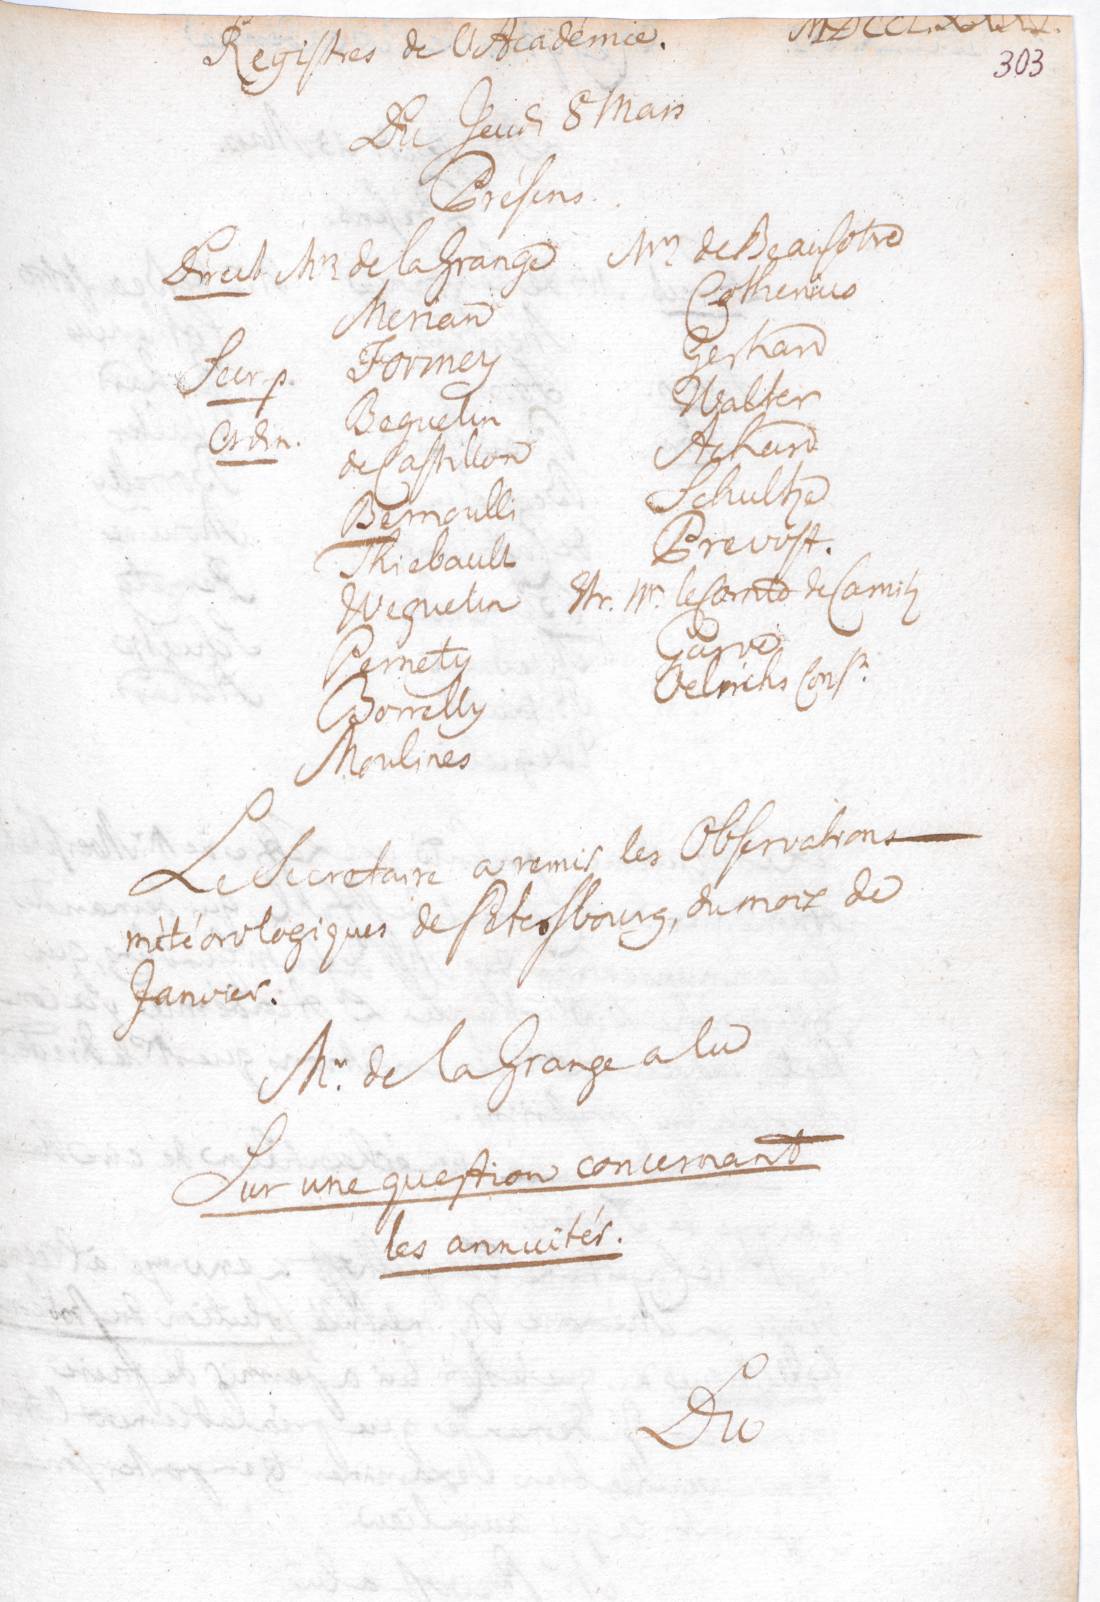 Registres de l'Académie.
303
Du Jeudi 8 Mars
Présens.
Direct Mrs de la Grange
Merian
Secr p. Formey
Ordin. Beguelin
de Castillon
Bernoulli
Thiebault
Weguelin
Pernety
Borrelly
Moulines
Mrs de Beausobre
Cothenius
Gerhard
Walter
Achard
Schultze
Prevost.
Etr. Mr. le Comte de
Garve
Oelrichs Consr.
Le Secretaire a remis les Observations
météorologiques de Petersbourg, du mois de
Janvier.
Mr. de la Grange a lu
Sur une question concernant
les annuités.
Du